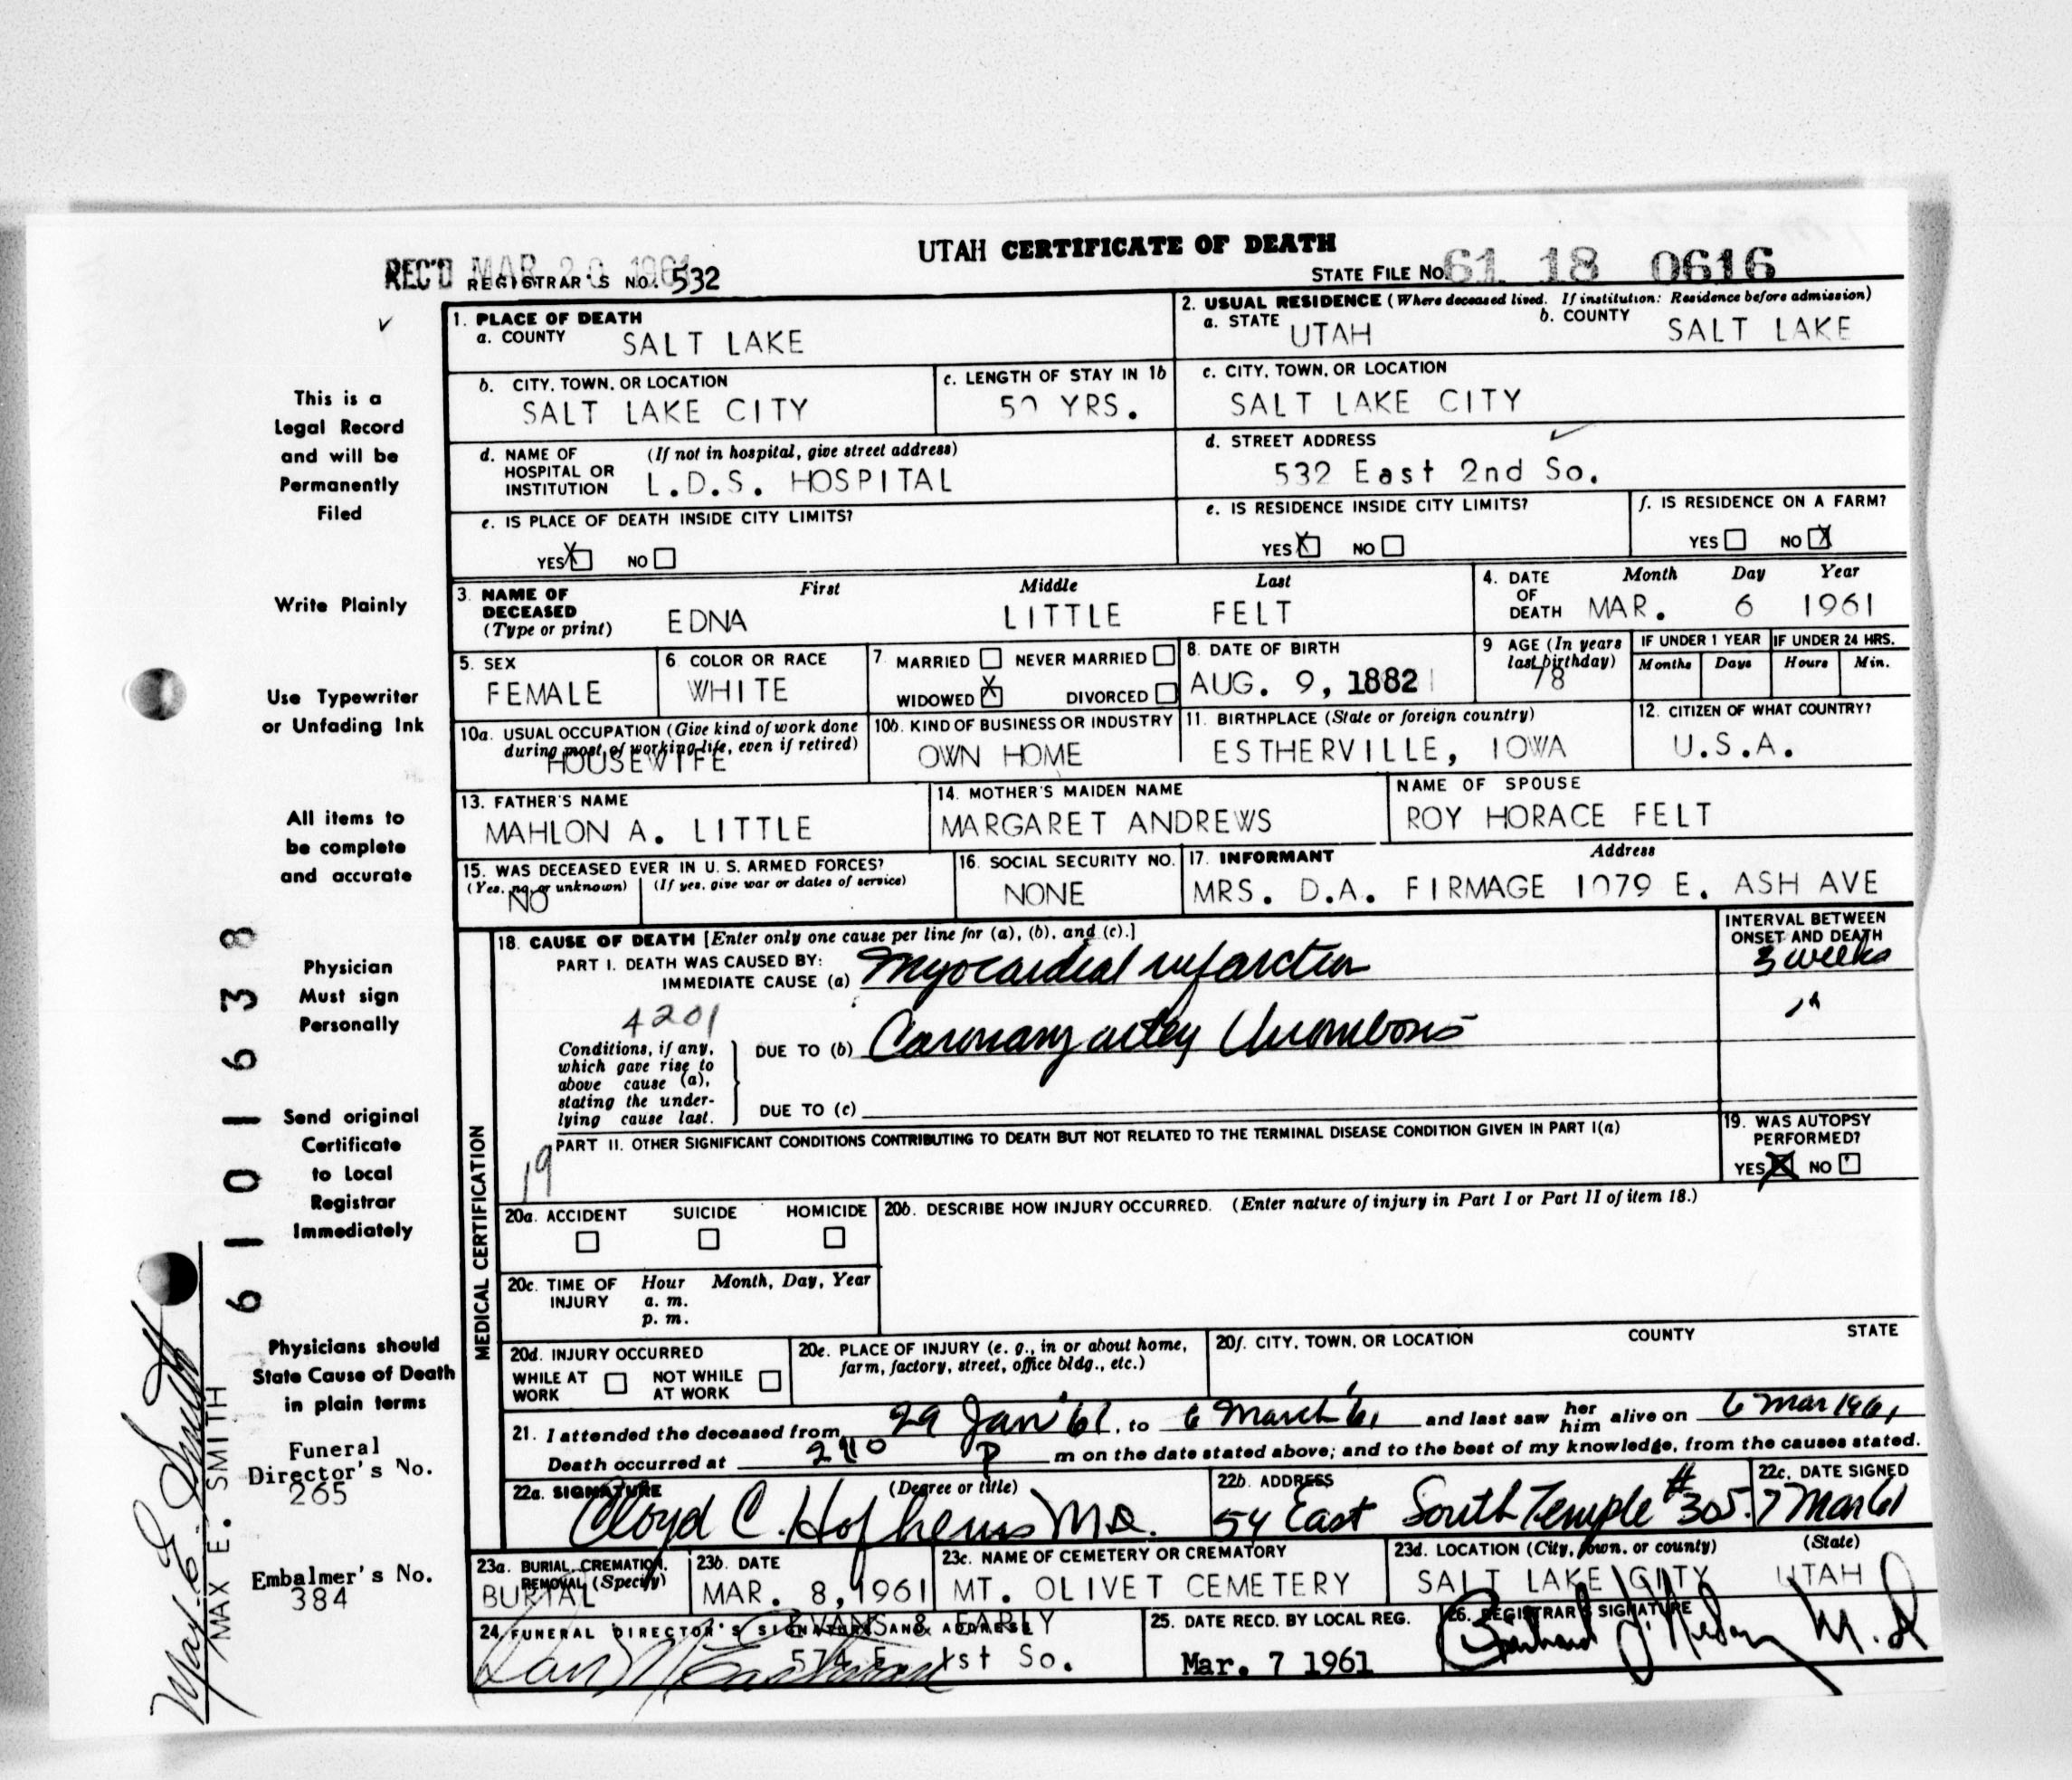 UTAH CERTIFICATE OF DEATH
REC'D MAR 20 1961
REGISTRAR'S NO. 532
STATE FILE NO. 61 18 0616
1. PLACE OF DEATH
a. COUNTY SALT LAKE
2. USUAL RESIDENCE (Where deceased lived. If institution: Residence before admission)
a. STATE UTAH b. COUNTY SALT LAKE
b. CITY, TOWN, OR LOCATION SALT LAKE CITY
c. LENGTH OF STAY IN 1b 50 YRS.
c. CITY, TOWN, OR LOCATION SALT LAKE CITY
d. NAME OF HOSPITAL OR INSTITUTION (If not in hospital, give street address)
L.D.S. HOSPITAL
d. STREET ADDRESS
532 East 2nd So.
e. IS PLACE OF DEATH INSIDE CITY LIMITS?
YES X NO
e. IS RESIDENCE INSIDE CITY LIMITS?
YES X NO
f. IS RESIDENCE ON A FARM?
YES NO X
3. NAME OF DECEASED (Type or print) First Middle Last
EDNA LITTLE FELT
4. DATE OF DEATH Month Day Year
MAR. 6 1961
5. SEX FEMALE
6. COLOR OR RACE WHITE
7 MARRIED NEVER MARRIED
WIDOWED X DIVORCED
8. DATE OF BIRTH
AUG. 9, 1882
9 AGE (In years last birthday) 78
IF UNDER 1 YEAR Months Days
IF UNDER 24 HRS. Hours Min.
10a. USUAL OCCUPATION (Give kind of work done during most of working life, even if retired)
HOUSEWIFE
10b. KIND OF BUSINESS OR INDUSTRY
OWN HOME
11. BIRTHPLACE (State or foreign country)
ESTHERVILLE, IOWA
12. CITIZEN OF WHAT COUNTRY?
U.S.A.
13. FATHER'S NAME
MAHLON A. LITTLE
14. MOTHER'S MAIDEN NAME
MARGARET ANDREWS
NAME OF SPOUSE
ROY HORACE FELT
15. WAS DECEASED EVER IN U. S. ARMED FORCES?
(Yes, no, or unknown) (If yes, give war or dates of service)
NO
16. SOCIAL SECURITY NO.
NONE
17. INFORMANT Address
MRS. D.A. FIRMAGE 1079 E. ASH AVE
MEDICAL CERTIFICATION
18. CAUSE OF DEATH [Enter only one cause per line for (a), (b), and (c).]
INTERVAL BETWEEN ONSET AND DEATH
PART I. DEATH WAS CAUSED BY:
IMMEDIATE CAUSE (a) Myocardial infarction 3 weeks
4201
Conditions, if any, which gave rise to above cause (a), stating the underlying cause last.
DUE TO (b) Coronary artery thrombosis "
DUE TO (c)
PART II. OTHER SIGNIFICANT CONDITIONS CONTRIBUTING TO DEATH BUT NOT RELATED TO THE TERMINAL DISEASE CONDITION GIVEN IN PART I(a)
19
19. WAS AUTOPSY PERFORMED?
YES X NO
20a. ACCIDENT SUICIDE HOMICIDE
20b. DESCRIBE HOW INJURY OCCURRED. (Enter nature of injury in Part I or Part II of item 18.)
20c. TIME OF INJURY Hour Month, Day, Year
a. m.
p. m.
20d. INJURY OCCURRED
WHILE AT WORK NOT WHILE AT WORK
20e. PLACE OF INJURY (e. g., in or about home, farm, factory, street, office bldg., etc.)
20f. CITY, TOWN, OR LOCATION COUNTY STATE
21. I attended the deceased from 29 Jan '61, to 6 March '61 and last saw her him alive on 6 Mar 1961
Death occurred at 2 10 P m on the date stated above; and to the best of my knowledge, from the causes stated.
22a. SIGNATURE (Degree or title)
Cloyd C. Hofheins M.D.
22b. ADDRESS
54 East South Temple #305
22c. DATE SIGNED
7 Mar 61
23a. BURIAL, CREMATION, REMOVAL (Specify)
BURIAL
23b. DATE
MAR. 8, 1961
23c. NAME OF CEMETERY OR CREMATORY
MT. OLIVET CEMETERY
23d. LOCATION (City, town, or county) (State)
SALT LAKE CITY UTAH
24. FUNERAL DIRECTOR'S SIGNATURE AND ADDRESS
EVANS & EARLY
574 E. 1st So.
25. DATE RECD. BY LOCAL REG.
Mar. 7 1961
26. REGISTRAR'S SIGNATURE
M.D
This is a
Legal Record
and will be
Permanently
Filed
Write Plainly
Use Typewriter
or Unfading Ink
All items to
be complete
and accurate
Physician
Must sign
Personally
Send original
Certificate
to Local
Registrar
Immediately
Physicians should
State Cause of Death
in plain terms
Funeral
Director's No.
265
Embalmer's No.
384
6 1 0 1 6 3 8
Max E. Smith
MAX E. SMITH